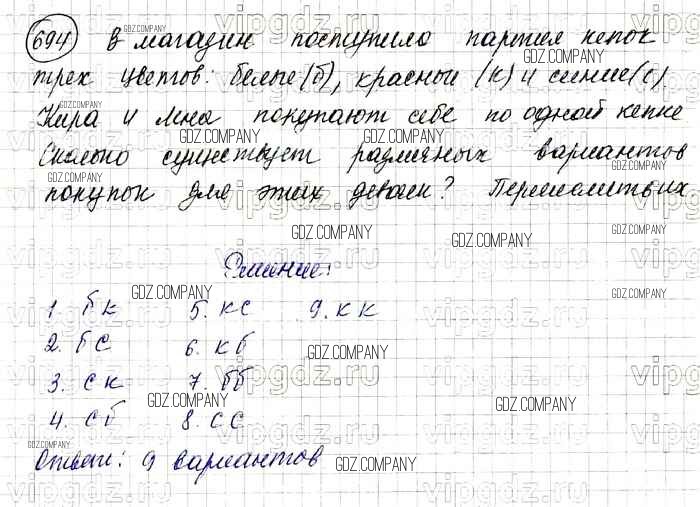 694 В магазин поступило партия кепок
трех цветов: белые (б), красные (к) и синие (с)
Кира и Лена покупают себе по одной кепке
Сколько существует различных вариантов
покупок для этих девочек? Перечислите их
Решение:
1. б к 5. к с 9. к к
2. б с 6. к б
3. с к 7. б б
4. с б 8. с с
Ответ: 9 вариантов
GDZ.COMPANY
vipgdz.ru